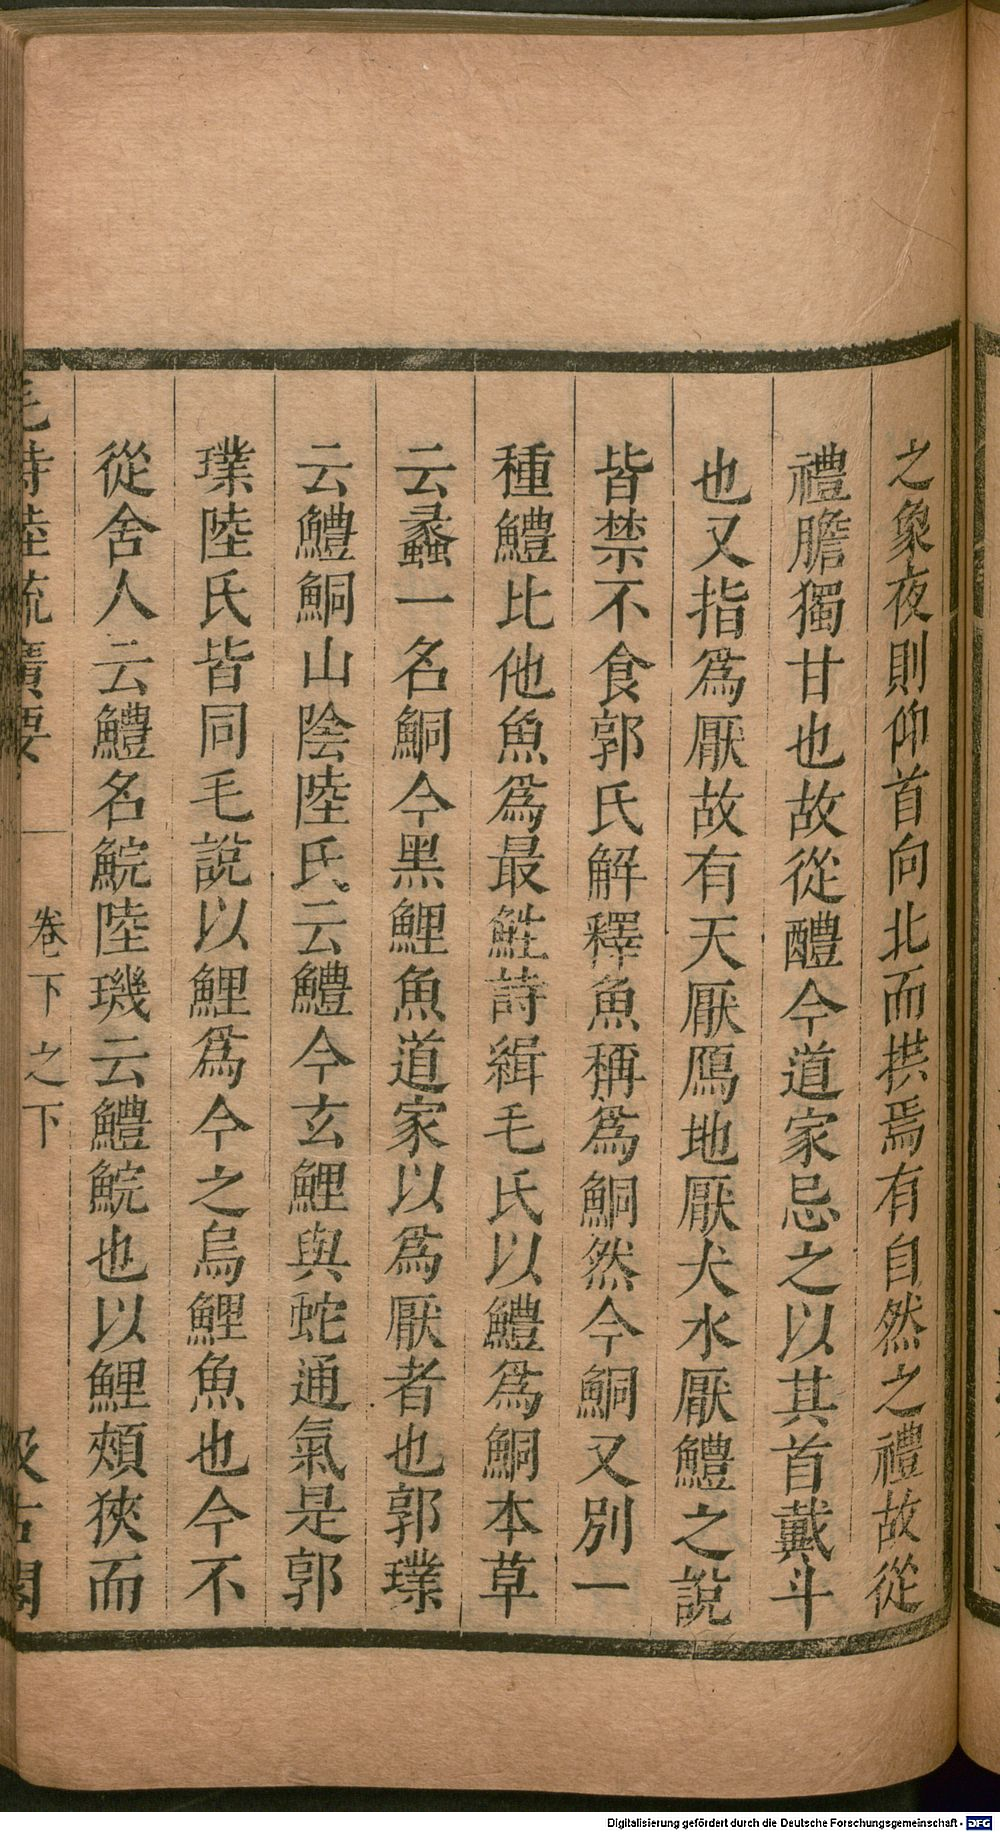 之象夜則仰首向北而拱焉有自然之禮故從
禮膽獨甘也故從醴今道家忌之以其首戴斗
也又指爲厭故有天厭鴈地厭犬水厭鱧之說
皆禁不食郭氏解釋魚稱爲鮦然今鮦又別一
種鱧比他魚爲最鮏詩緝毛氏以鱧爲鮦本草
云蠡一名鮦今黑鯉魚道家以爲厭者也郭璞
云鱧鮦山陰陸氏云鱧今玄鯉與蛇通氣是郭
璞陸氏皆同毛說以鯉爲今之烏鯉魚也今不
從舍人云鱧名鯇陸璣云鱧鯇也以鯉頰狹而
毛詩陸疏廣要 卷下之下 汲古閣
Digitalisierung gefördert durch die Deutsche Forschungsgemeinschaft - DFG